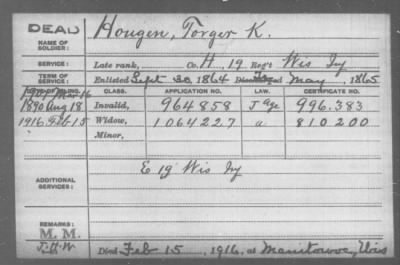 DEAD
NAME OF SOLDIER: Hougen, Torger K.
SERVICE: Late rank, Co. H, 19 Reg't Wis Inf
TERM OF SERVICE: Enlisted Sept 30, 1864 May, 1865
DATE OF FILING. CLASS. APPLICATION NO. CERTIFICATE NO.
1890 Aug 18. Invalid, 964858 J Age 996.383
1916. Feb 15 Widow, 1064227 a 810200
Minor,
ADDITIONAL SERVICES: E 19 Wis Inf
REMARKS: M. M.
J.H.W Died Feb 15, 1916, at Manitowoc, Wis